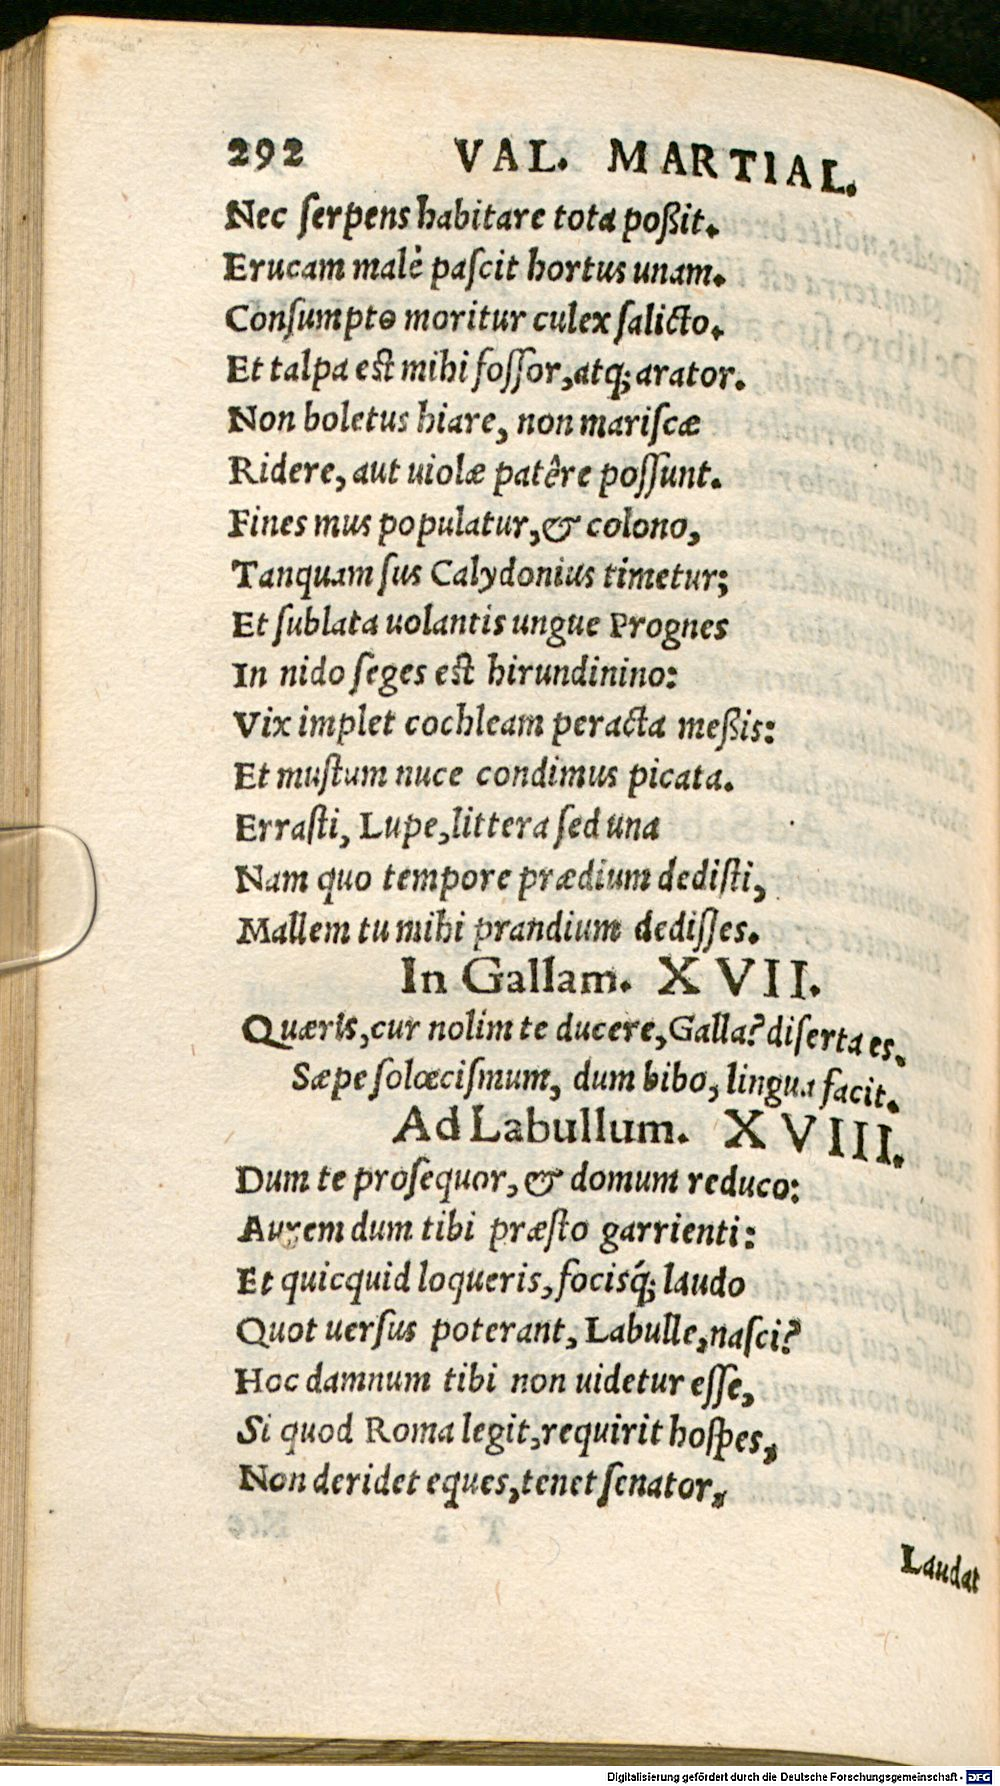 292 VAL. MARTIAL.
Nec ſerpens habitare tota poßit.
Erucam malè paſcit hortus unam.
Conſumpto moritur culex ſalicto.
Et talpa est mihi foſſor, atq; arator.
Non boletus hiare, non mariſcæ
Ridere, aut uiolæ patêre poſſunt.
Fines mus populatur, & colono,
Tanquam ſus Calydonius timetur;
Et ſublata uolantis ungue Prognes
In nido ſeges est hirundinino:
Vix implet cochleam peracta meßis:
Et muſtum nuce condimus picata.
Erraſti, Lupe, littera ſed una
Nam quo tempore prædium dediſti,
Mallem tu mihi prandium dediſſes.
In Gallam. XVII.
Quæris, cur nolim te ducere, Galla? diſerta es.
Sæpe ſolœciſmum, dum bibo, lingua facit.
Ad Labullum. XVIII.
Dum te proſequor, & domum reduco:
Aurem dum tibi præſto garrienti:
Et quicquid loqueris, facisq́; laudo
Quot uerſus poterant, Labulle, naſci?
Hoc damnum tibi non uidetur eſſe,
Si quod Roma legit, requirit hoſpes,
Non deridet eques, tenet ſenator,
Laudat
Digitalisierung gefördert durch die Deutsche Forschungsgemeinschaft - DFG